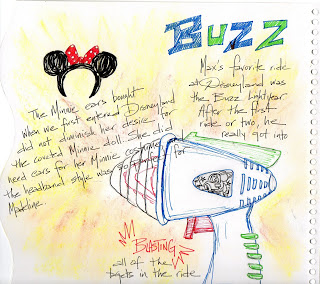 BUZZ
Max's favorite ride
at Disneyland was
the Buzz Lightyear
After the first
ride or two, he
really got into
BLASTING
all of the
targets in the ride
The Minnie ears bought
when we first entered Disneyland
did not diminish her desire for
the coveted Minnie doll. She did
need ears for her Minnie costume
the headband style was so perfect for
Madeline.